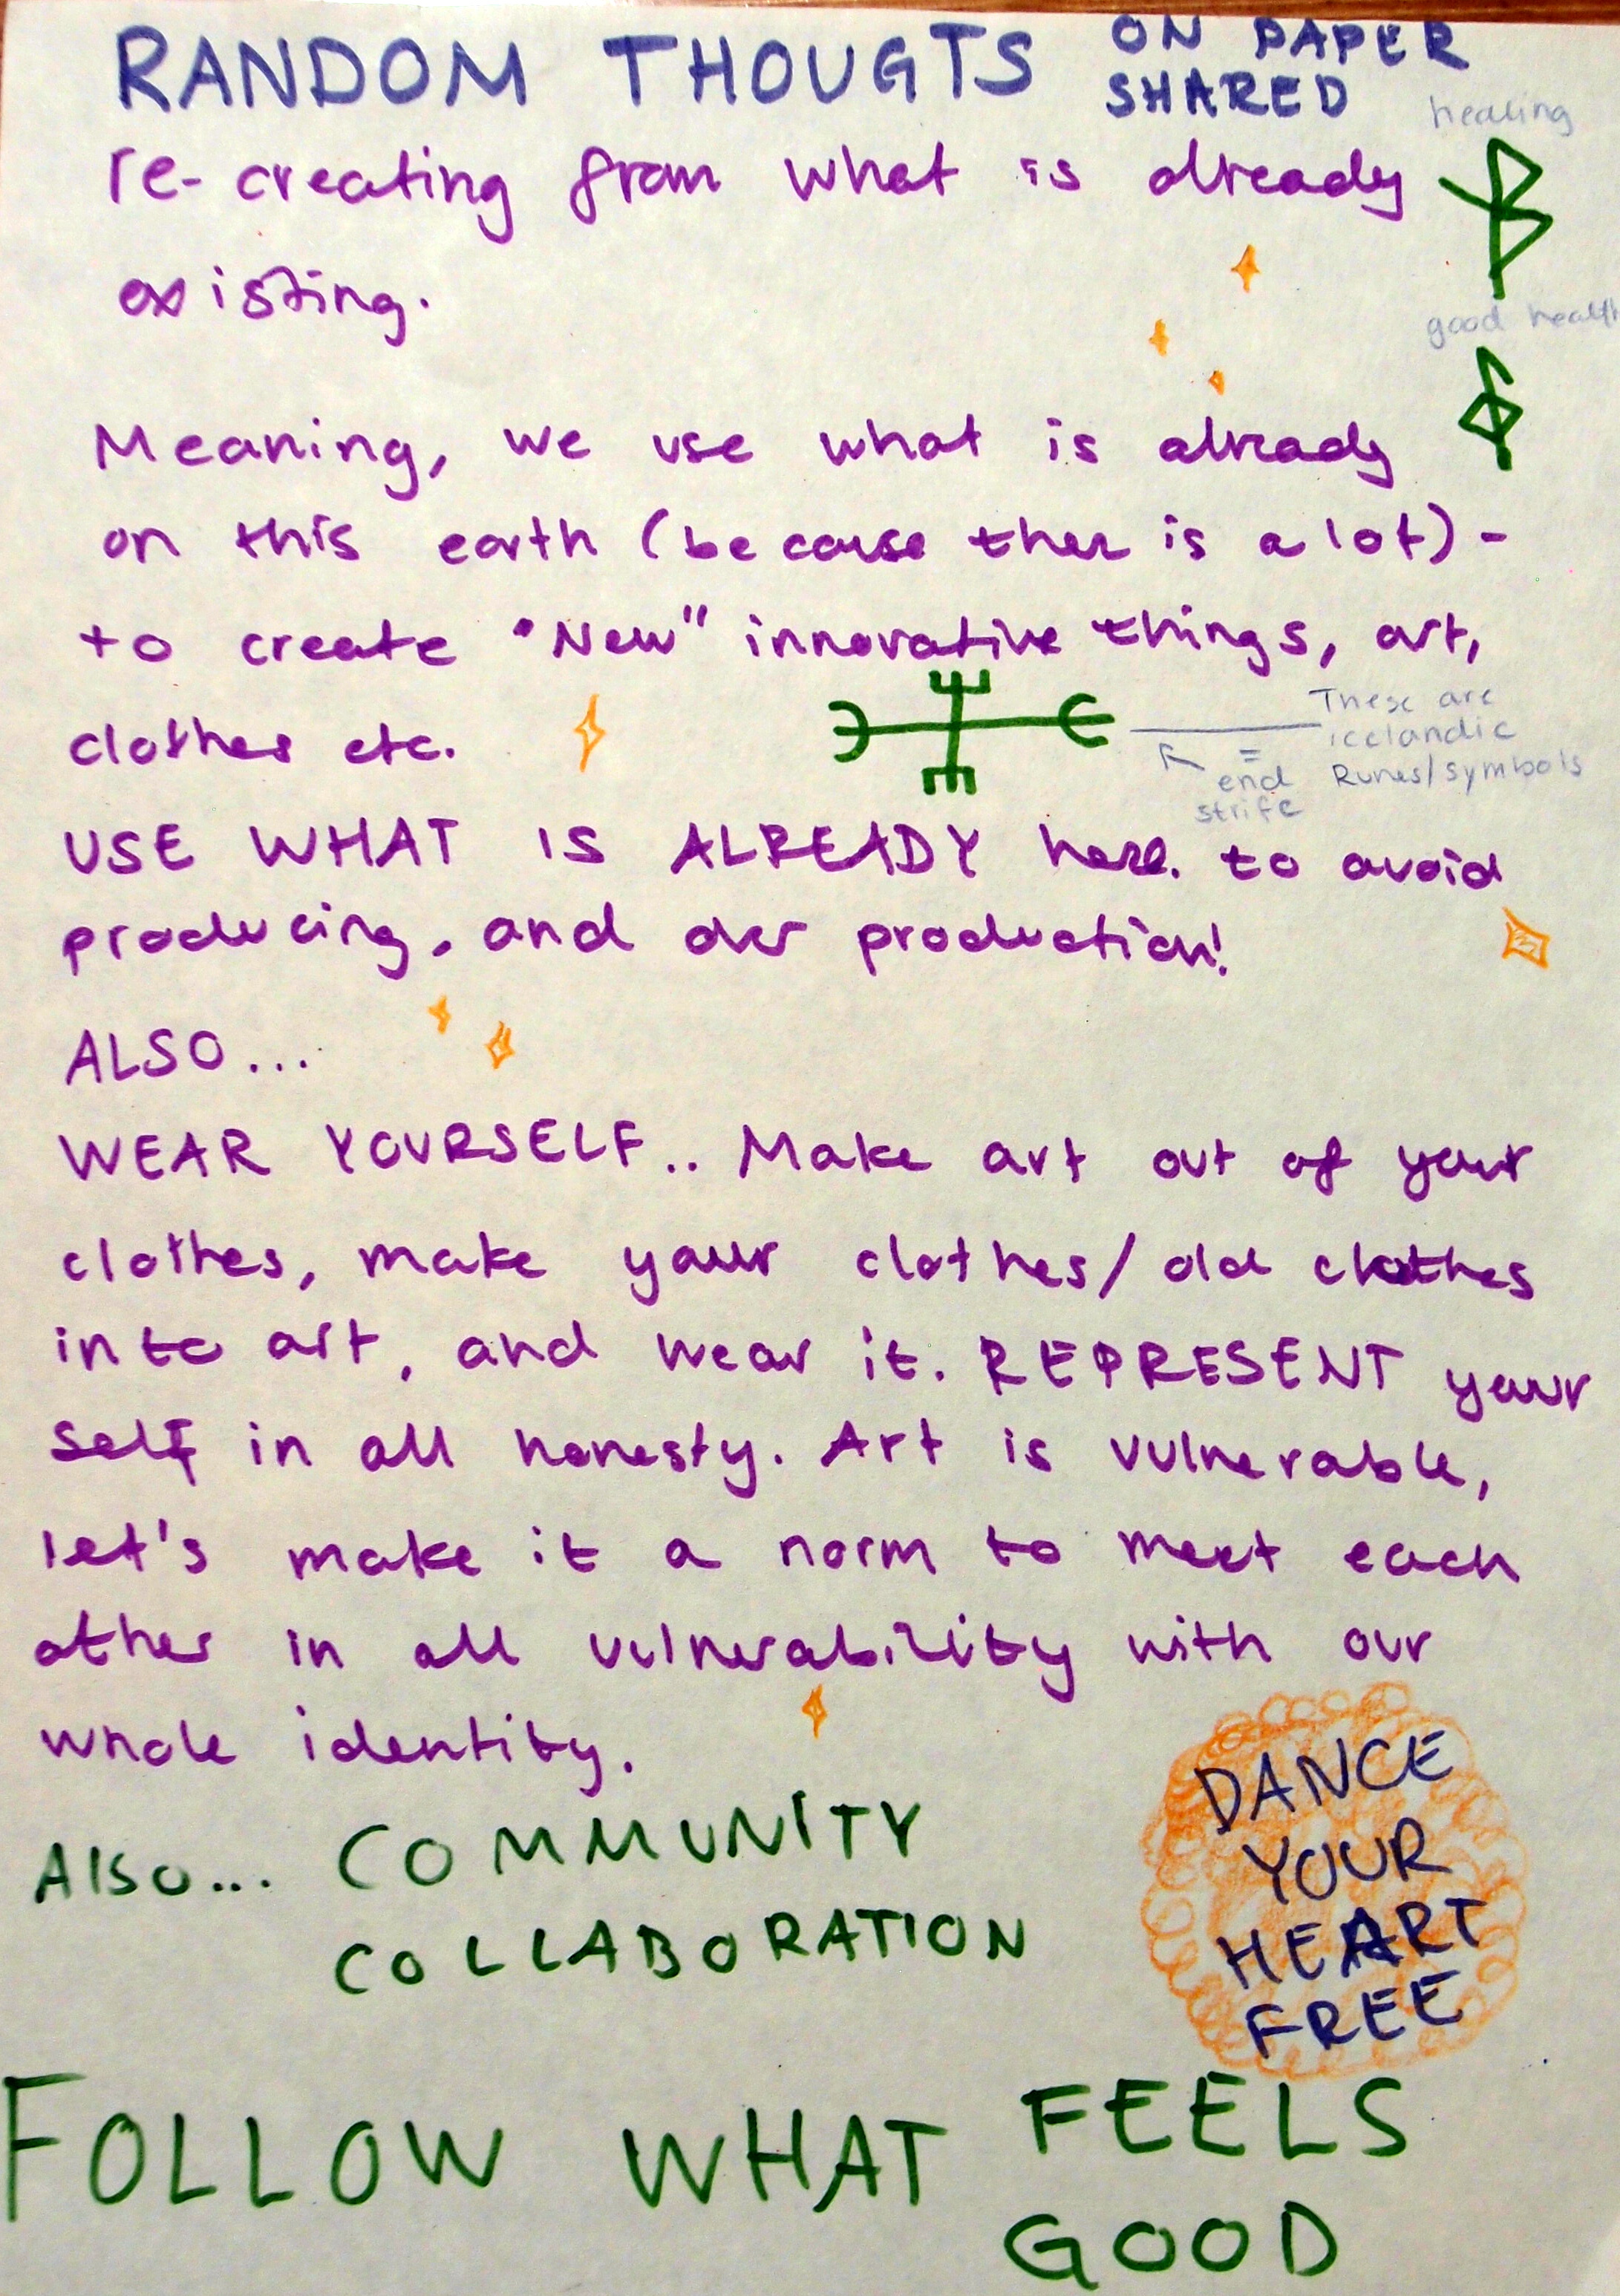 RANDOM THOUGTS ON PAPER
SHARED
healing
re-creating from what is already
existing.
good health
Meaning, we use what is already
on this earth (because ther is a lot) -
to create "New" innovative things, art,
clothes etc.
These are
icelandic
Runes/symbols
=
end
strife
USE WHAT IS ALREADY here. to avoid
producing, and over production!
ALSO...
WEAR YOURSELF.. Make art out of your
clothes, make your clothes/old clothes
into art, and wear it. REPRESENT your
self in all honesty. Art is vulnerable,
let's make it a norm to meet each
other in all vulnerability with our
whole identity.
Also... COMMUNITY
COLLABORATION
DANCE
YOUR
HEART
FREE
FOLLOW WHAT FEELS
GOOD